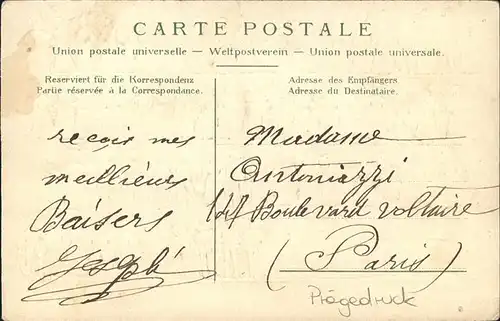 CARTE POSTALE
Union postale universelle — Weltpostverein — Union postale universale.
Reserviert für die Korrespondenz
Partie réservée à la Correspondance.
recois mes
meilleurs
Baisers
Joseph
Adresse des Empfängers
Adresse du Destinataire.
Madame
Antoniazzi
Boulevard Voltaire
(Paris)
Prägedruck